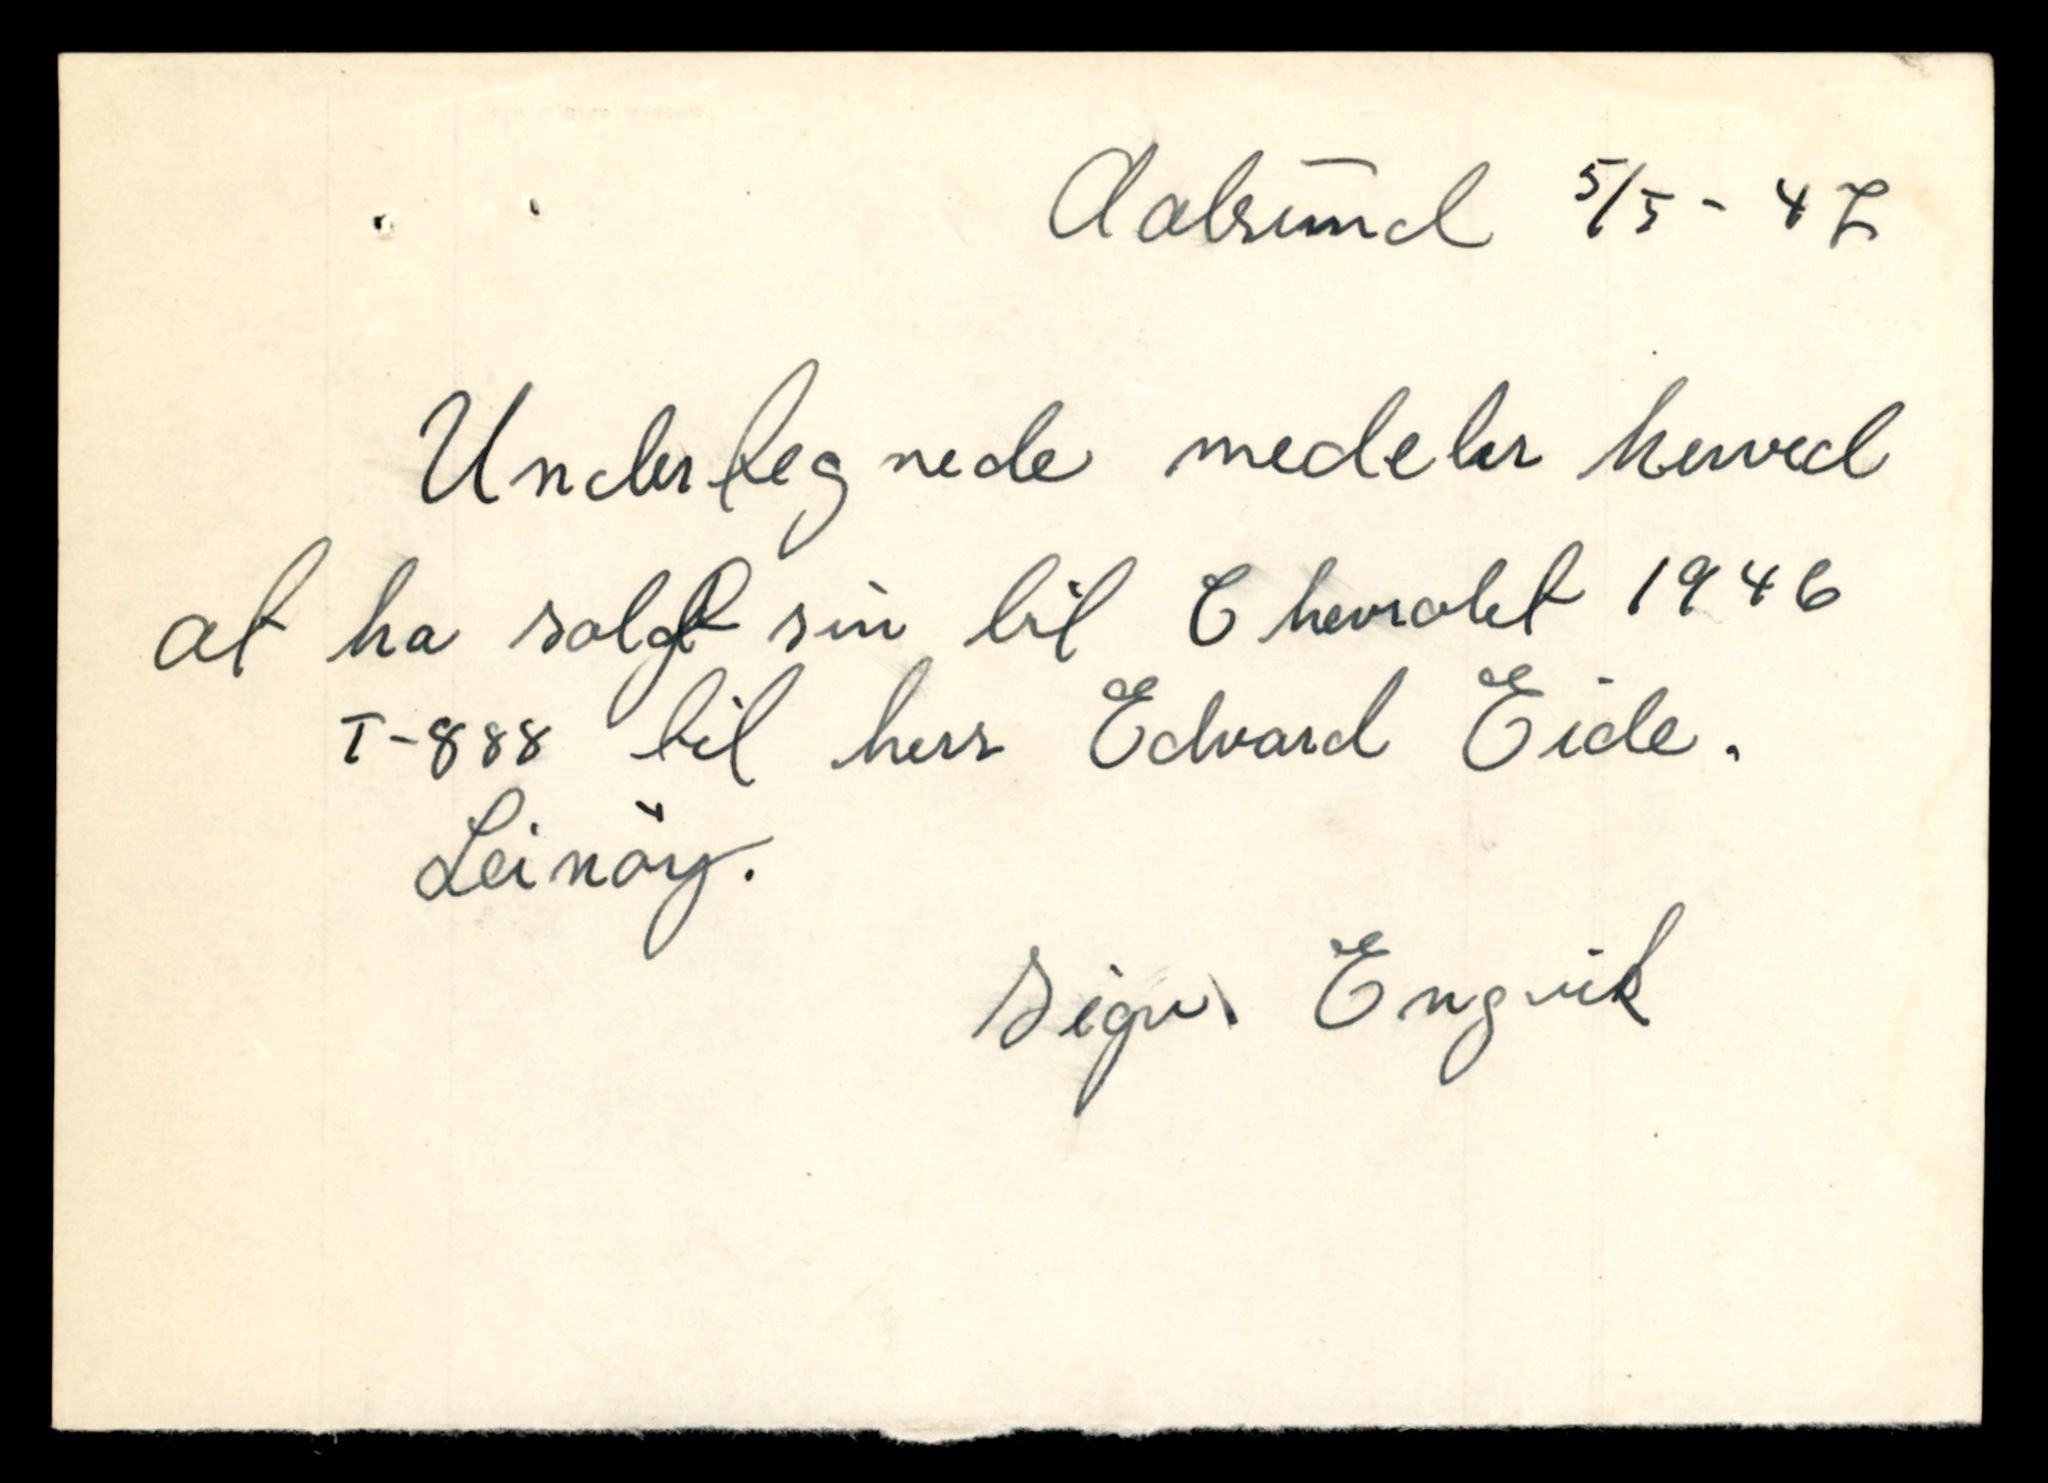 Aalesund 5/5 - 47
Undertegnede medeler herved
at ha solgt sin bil Chevrolet 1946
T-888 til herr Edvard Eide.
Leinöy.
Sigv. Engvik